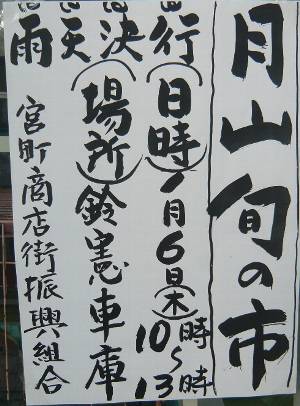 月山旬の市
(日時)7月6日(木)10時~13時
(場所)鈴憲車庫
雨天決行
宮町商店街振興組合